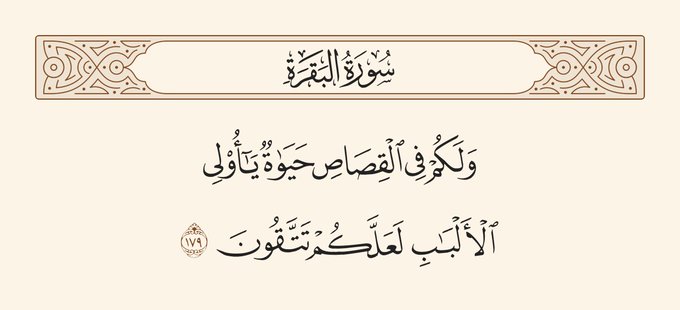 سُورَةُ البَقَرَةِ
وَلَكُمۡ فِي ٱلۡقِصَاصِ حَيَوٰةٞ يَٰٓأُوْلِي
ٱلۡأَلۡبَٰبِ لَعَلَّكُمۡ تَتَّقُونَ ١٧٩